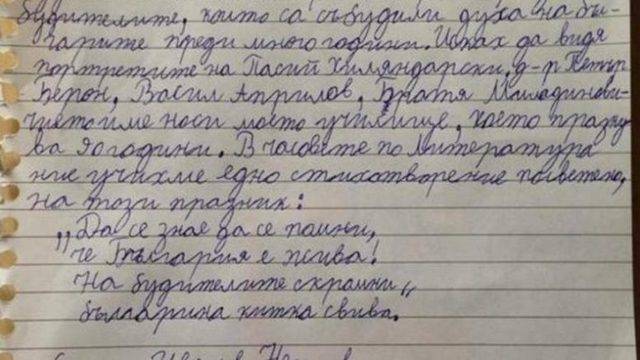 будителите, които са събудили духа на бъ-
гарите преди много години. Исках да видя
портретите на Пасий Хиляндарски, д-р Петър
Берон, Васил Априлов, Братя Миладинови-
чието име носи моето училище, което празну
ва 90 години. В часовете по литература
ние учихме едно стихотворение посветено,
на този празник:
„Да се знае да се помни,
че България е жива!
На будителите скромни„
българина китка свива.